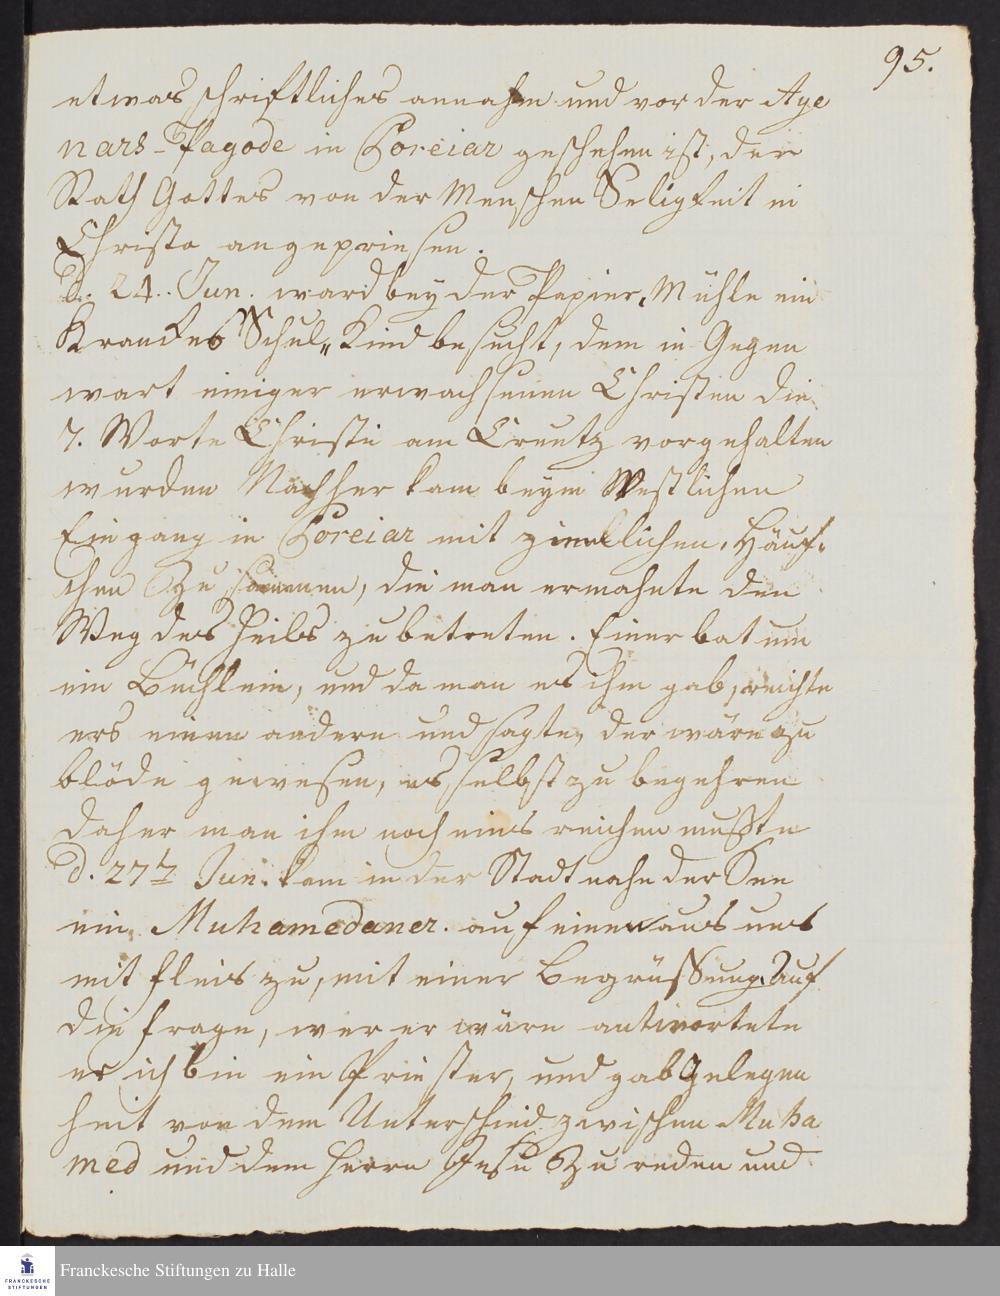 95.
etwas schriftliches annahm und vor der Aye
nars-Pagode in Poreiar geschehen ist, der
Rath Gottes von der Menschen Seligkeit in
Christo angepriesen.
d. 24. Jun. ward bey der Papier-Mühle ein
Kranckes Schul„Kind besucht, dem in Gegen
wart einiger erwachsenen Christen die
7. Worte Christi am Creutz vorgehalten
wurden Nachher kam beym Westlichen
Eingang in Poreiar mit ziemlichen Häuf-
chen zusammen, die man ermahnte den
Weg des Heils zu betreten. Einer bat um
ein Büchlein, und da man es ihm gab, reichte
ers einem andern und sagte, der wäre zu
blöde gewesen, es selbst zu begehren
daher man ihm noch eins reichen mußte
d. 27t Jun. kam in der Stadt nahe der See
ein Muhamedaner auf einen aus uns
mit Fleis zu, mit einer Begrüssung. Auf
die Frage, wer er wäre antwortete
er ich bin ein Priester, und gab Gelegen
heit von dem Unterschied zwischen Muha
med und dem Herrn Jesu zu reden und
Franckesche Stiftungen zu Halle
FRANCKESCHE
STIFTUNGEN